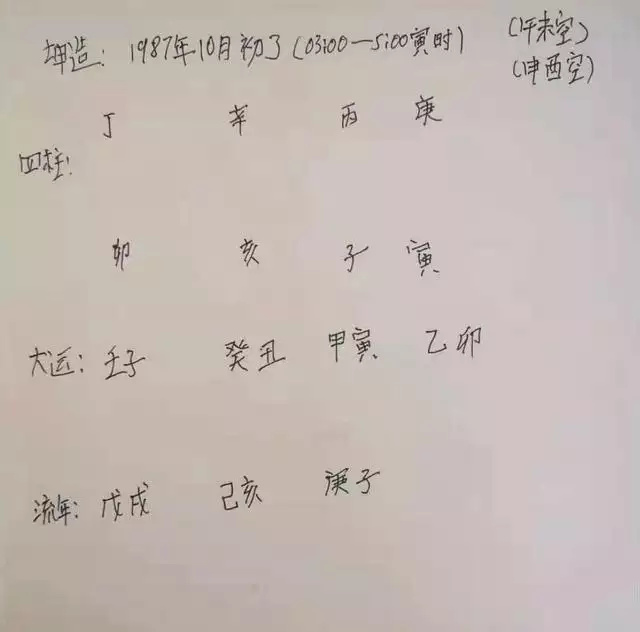 坤造：1987年10月初3(03:00—5:00寅时) (午未空)
(申酉空)
丁 辛 丙 庚
四柱：
卯 亥 子 寅
大运：壬子 癸丑 甲寅 乙卯
流年：戊戌 己亥 庚子